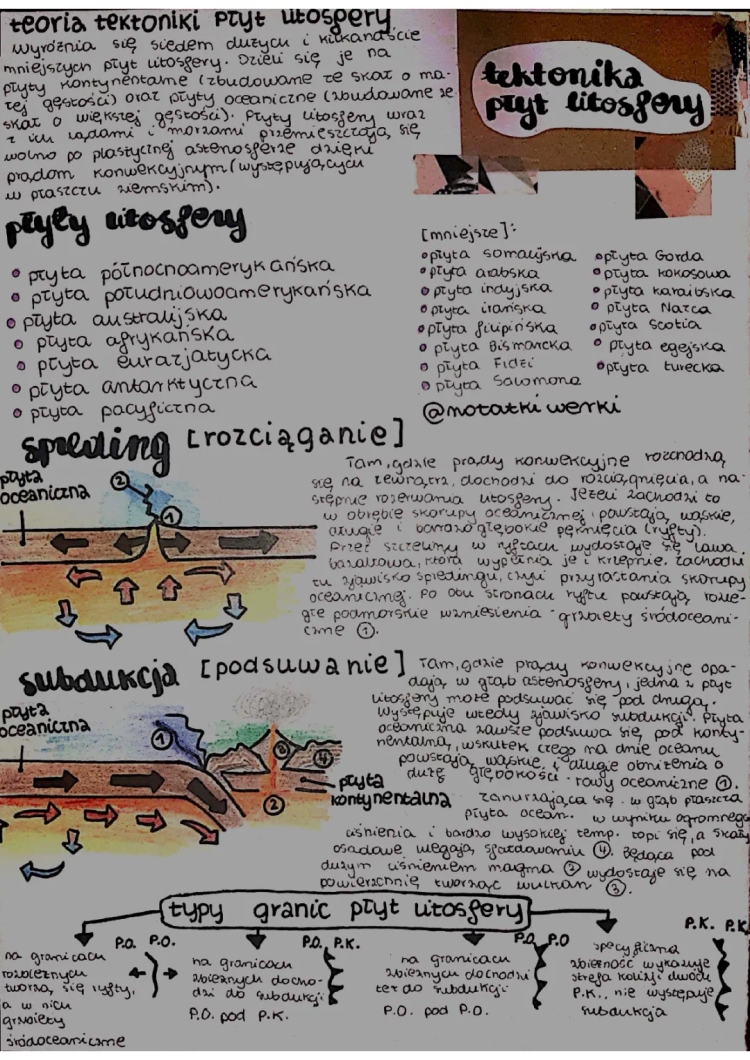 teoria tektoniki płyt litosfery
Wyróżnia się siedem dużych i kilkanaście
mniejszych płyt litosfery. Dzieli się je na
płyty kontynentalne (zbudowane ze skał o ma-
łej gęstości) oraz płyty oceaniczne (zbudowane ze
skał o większej gęstości). Płyty litosfery wraz
z ich lądami i morzami przemieszczają się
wolno po plastycznej astenosferze dzięki
prądom konwekcyjnym (występujących
w płaszczu ziemskim).
tektonika
płyt litosfery
płyty litosfery
płyta północnoamerykańska
płyta południowoamerykańska
płyta australijska
płyta afrykańska
płyta eurazjatycka
płyta antarktyczna
płyta pacyficzna
[mniejsze]:
płyta somalijska
płyta arabska
płyta indyjska
płyta irańska
płyta filipińska
płyta Bismarcka
płyta Fidżi
płyta Salomona
płyta Gorda
płyta kokosowa
płyta karaibska
płyta Nazca
płyta Scotia
płyta egejska
płyta turecka
@notatki werki
spreding [rozciąganie]
płyta
oceaniczna
2
1
Tam, gdzie prądy konwekcyjne rozchodzą
się na zewnątrz, dochodzi do rozciągnięcia, a na-
stępnie rozerwania litosfery. Jeżeli zachodzi to
w obrębie skorupy oceanicznej powstają wąskie,
długie i bardzo głębokie pęknięcia (ryfty).
Przez szczeliny w ryftach wydostaje się lawa
bazaltowa, która wypełnia je i krzepnie. Zachodzi
tu zjawisko spredingu, czyli przyrastania skorupy
oceanicznej. Po obu stronach ryftu powstają rozle-
głe podmorskie wzniesienia - grzbiety śródoceani-
czne 1.
subdukcja [podsuwanie]
płyta
oceaniczna
1
3
4
2
płyta
kontynentalna
Tam, gdzie prądy konwekcyjne opa-
dają w głąb astenosfery, jedna z płyt
litosfery może podsuwać się pod drugą.
Występuje wtedy zjawisko subdukcji. Płyta
oceaniczna zawsze podsuwa się pod konty-
nentalną, wskutek czego na dnie oceanu
powstają wąskie i długie obniżenia o
dużej głębokości - rowy oceaniczne 1.
Zanurzająca się w głąb płaszcza
płyta ocean. w wyniku ogromnego
ciśnienia i bardzo wysokiej temp. topi się, a skały
osadowe ulegają sfałdowaniu 4. Będąca pod
dużym ciśnieniem magma 2 wydostaje się na
powierzchnię tworząc wulkan 3.
typy granic płyt litosfery
P.O. P.O.
na granicach
rozbieżnych
tworzą się ryfty,
a w nich
grzbiety
śródoceaniczne
P.O. P.K.
na granicach
zbieżnych docho-
dzi do subdukcji
P.O. pod P.K.
P.O. P.O
na granicach
zbieżnych dochodzi
też do subdukcji
P.O. pod P.O.
P.K. P.K.
specyficzną
zbieżność wykazuje
strefa kolizji dwóch
P.K., nie występuje
subdukcja